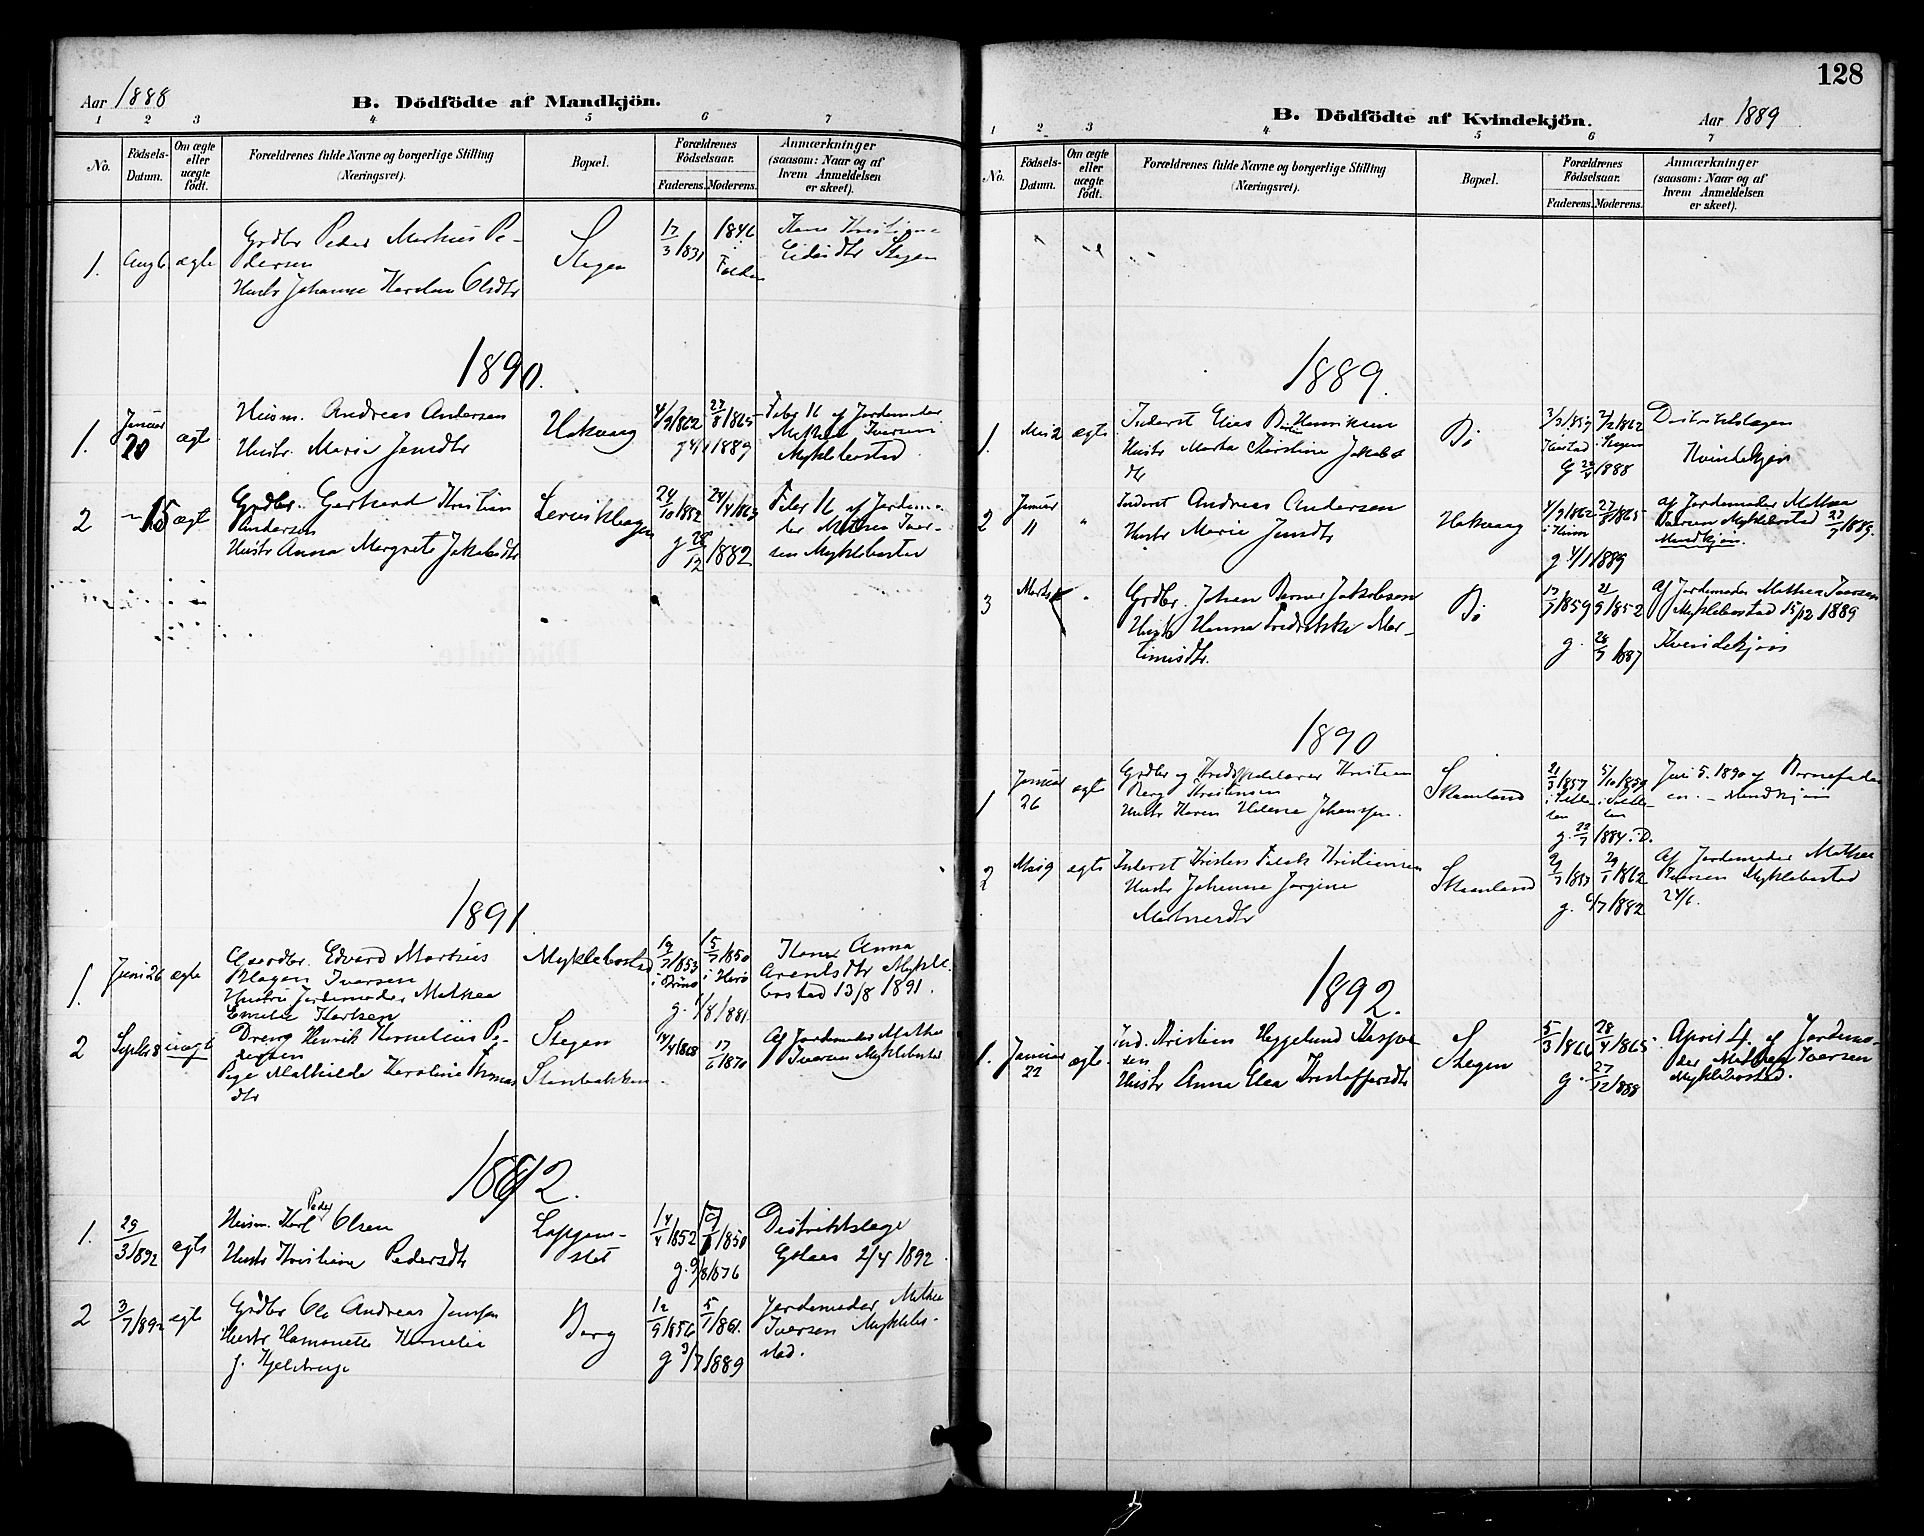 128
Aar 1888
B. Dödfödte af Mandkjön.
1 2 3 4 5 6 7
No.
Födsels-Datum.
Om ægte eller uægte født.
Forældrenes fulde Navne og borgerlige Stilling
(Næringsvei).
Bopæl.
Forældrenes Födselsaar.
Faderens. Moderens.
Anmærkninger
(saasom: Naar og af
hvem Anmeldelsen
er skeet).
1. Aug 6 ægte Grdbr Peder Markus Pe-
dersen
Hustr Johanna Olsdtr
Stegen
17/3 1831 1846 i Folden
Stegen
1890.
1. Januar 20 ægte Husm. Andreas Andersen
Hustr. Maria Jensdtr
Hakvaag
4/9 1862 27/8 1865
g 4/1 1889
Febr 16 af Jordemoder
Mathea Iversen
Myklebostad
2 - 15 ægte Grdbr. Gerhard Kristian
Andersen
Hustr Anna Margrete Jakobsdtr
24/10 1852 24/4 1863
g 28/12 1882
Febr 16 af Jordemo-
der Mathea Iver-
sen Myklebostad
1891
1. Juni 26 ægte Gaardbr. Edvard Markus
Iversen
Hustru Jordemoder Mathea
Emilie
Myklebostad
19/7 1853 15/7 1850
g. 1/8 1881
Anna
Arentsdtr Mykle-
bostad 13/8 1891.
2 Septbr 8 uægte Dreng Henrik Kornelius Pe-
dersen
Pige Mathilde Karoline Thomas
dtr
Stegen
Stenbakken
14/4 1868 17/6 1870
Af Jordemoder Mathea
Iversen Myklebostad
1892.
1. 29/3 1892 ægte Husm. Karl Peder Olsen
Hustr Kristiane Pedersdtr
14/4 1852 1850
g. 9/8 1876
Distriktslæge
2/4 1892
2 3/7 1892 ægte Grdbr Ole Andreas Jenssen
Hustr Kornelia
Berg
12/9 1856 5/1 1861.
g 3/7 1889
Jordemoder Mathea
Iversen Myklebo-
stad.
B. Dödfödte af Kvindekjön.
Aar 1889
1 2 3 4 5 6 7
No.
Födsels-Datum.
Om ægte eller uægte födt.
Forældrenes fulde Navne og borgerlige Stilling
(Næringsvei).
Bopæl.
Forældrenes Födselsaar.
Faderens. Moderens.
Anmærkninger
(saasom: Naar og af
hvem Anmeldelsen
er skeet).
1889.
1. Mai 2 ægte Inderst Elias Henriksen
Hustr Marta Kristine Jakobs
dtr
Bö
3/3 1859 2/2 1862
i Stegen
G 1888
Distriktslægen
Kvindekjön
2 Januar 11 " Inderst Andreas Andersen
Hustr Marie Jensdtr
Hakvaag
4/9 1862 27/8 1865
g 4/1 1889
af Jordemoder Mathea
Iversen Myklebostad 1889.
Mandkjön.
3 Marts " Grdbr. Johan Berner Jakobsen
Hustr Hanna Fredrikke Mar-
tinusdtr.
Bö
17/7 1859 21/9 1852
g. 28/9 1887
Af Jordemoder Mathea Iversen
Myklebostad 15/12 1889
Kvindekjön
1890
1 Januar 26 ægte Grdbr og Handelsbetjener Kristian
Berg Kristensen
Hustr Karen Helene Johanssen.
Skaanland
21/3 1857 5/10 1859
g. 22/7 1884
Juni 5. 1890 af Barnefader
en. - Mandkjön
2 Mai 9 ægte Inderst Kristen Falck Kristiansen
Hustr Johanna Jorgine
Martinusdtr
Skaanland
1862
g. 1882
Af Jordemoder Mathea
Iversen Myklebostad
24/6.
1892.
1. Januar 22 ægte. Ind. Kristian Heggelund Kasper
sen
Hustr Anna Elea Kristoffersdtr
Stegen
5/3 1866 28/4 1865
g. 27/12 1888
April 4. af Jordemo-
der Mathea Iversen
Myklebostad.